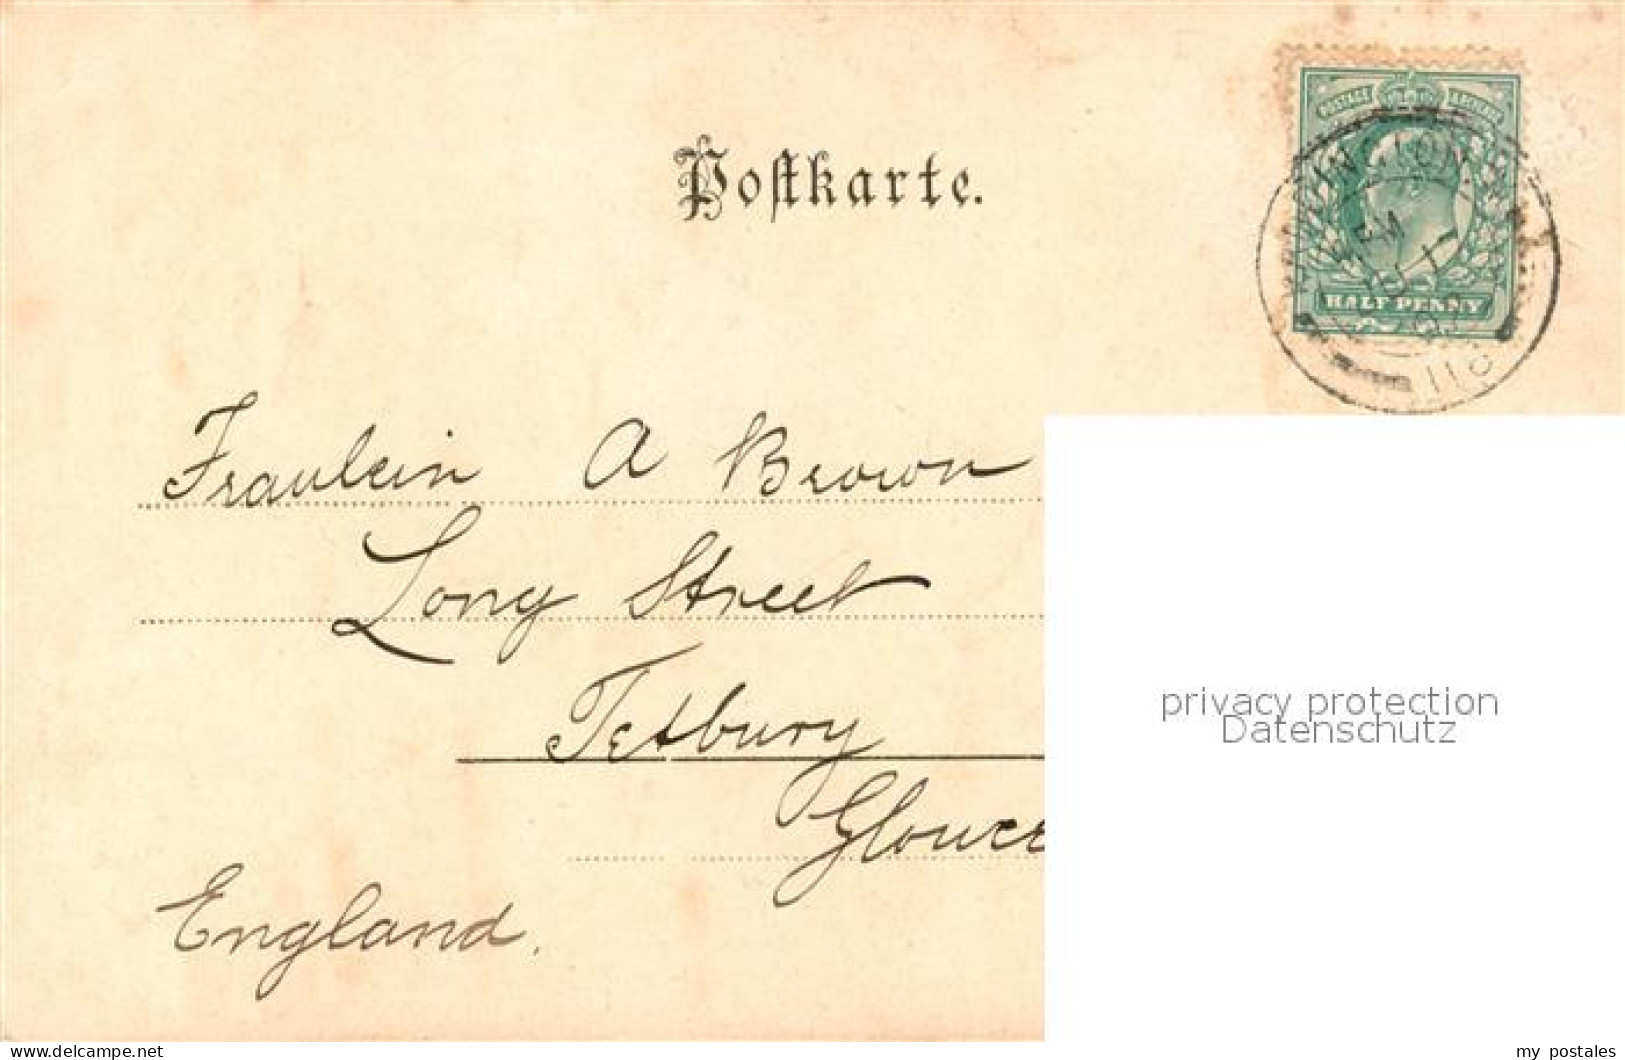 Postkarte.
POSTAGE
HALF PENNY
118
Fraulein A Brown
Long Street
Tetbury
Glouce
England.
privacy protection
Datenschutz
www.delcampe.net
my_postales